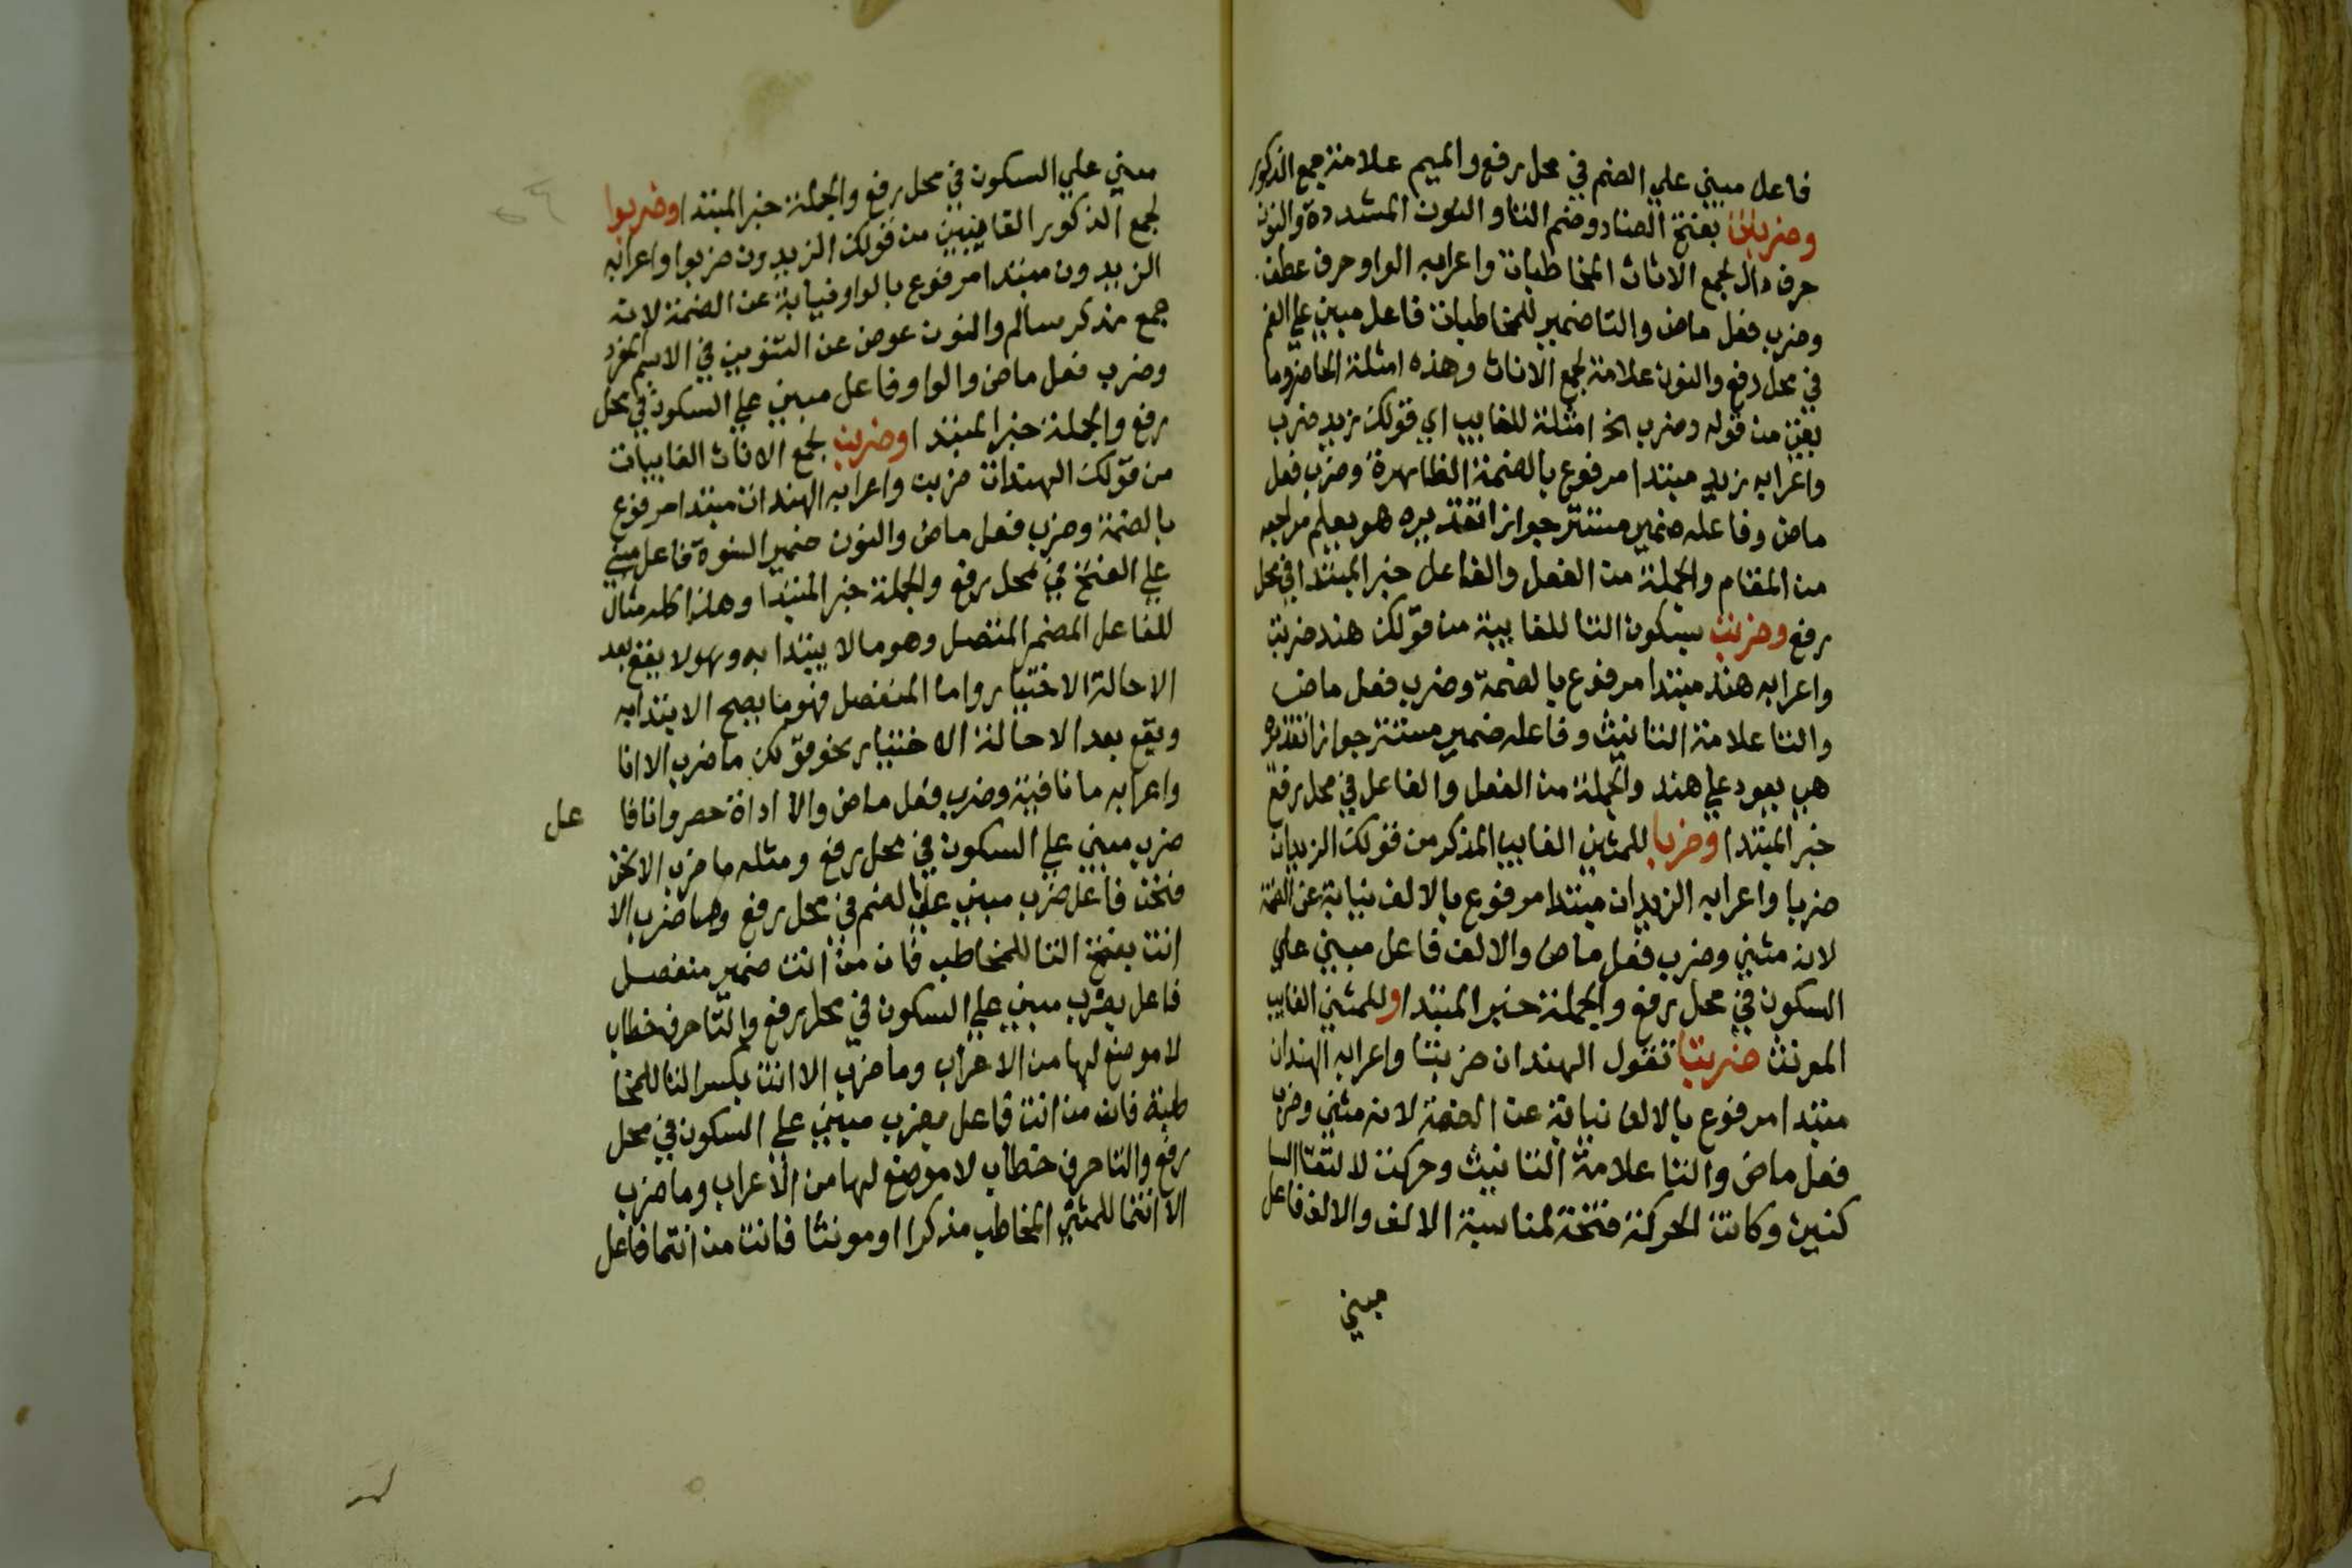 فاعل مبني علي الضم في محل رفع والميم علامة جمع الذكور
وضربتن بفتح الضاد وضم التا والنون المشددة والنون
حرف دال لجمع الاناث المخاطبات واعرابه الواو حرف عطف
وضرب فعل ماض والتا ضمير للمخاطبات فاعل مبني علي الضم
في محل رفع والنون علامة لجمع الاناث وهذه امثلة الحاضر وما
بقي من قوله وضرب الخ امثلة للغايب اي قولك زيد ضرب
واعرابه زيد مبتدا مرفوع بالضمة الظاهرة وضرب فعل
ماض وفاعله ضمير مستتر جوازا تقديره هو يعلم مراجعه
من المقام والجملة من الفعل والفاعل خبر المبتدا في محل
رفع وضربت بسكون التا للغايبة من قولك هند ضربت
واعرابه هند مبتدا مرفوع بالضمة وضرب فعل ماض
والتا علامة التانيث وفاعله ضمير مستتر جوازا تقديره
هي يعود علي هند والجملة من الفعل والفاعل في محل رفع
خبر المبتدا وضربا للمثني الغايب المذكر من قولك الزيدان
ضربا واعرابه الزيدان مبتدا مرفوع بالالف نيابة عن الضمة
لانه مثني وضرب فعل ماض والالف فاعل مبني علي
السكون في محل رفع والجملة خبر المبتدا وللمثني الغايب
المونث ضربتا تقول الهندان ضربتا واعرابه الهندان
مبتدا مرفوع بالالف نيابة عن الضمة لانه مثني وضرب
فعل ماض والتا علامة التانيث وحركت لالتقا السا
كنين وكانت الحركة فتحة لمناسبة الالف والالف فاعل
مبني
مبني علي السكون في محل رفع والجملة خبر المبتدا وضربوا
لجمع الذكور الغايبين من قولك الزيدون ضربوا واعرابه
الزيدون مبتدا مرفوع بالواو نيابة عن الضمة لانه
جمع مذكر سالم والنون عوض عن التنوين في الاسم المفرد
وضرب فعل ماض والواو فاعل مبني علي السكون في محل
رفع والجملة خبر المبتدا وضربن لجمع الاناث الغايبات
من قولك الهندات ضربن واعرابه الهندات مبتدا مرفوع
بالضمة وضرب فعل ماض والنون ضمير النسوة فاعل مبني
علي الفتح في محل رفع والجملة خبر المبتدا وهذا كله مثال
للفاعل المضمر المتصل وهو ما لا يبتدا به وهو لا يقع بعد
الا حالة الاختيار واما المنفصل فهو ما يصح الابتدا به
ويقع بعد الا حالة الاختيار نحو قولك ما ضرب الا انا
واعرابه ما نافية وضرب فعل ماض والا اداة حصر وانا فا عل
ضرب مبني علي السكون في محل رفع ومثله ما ضرب الا نحن
فنحن فاعل ضرب مبني علي الضم في محل رفع وما ضرب الا
انت بفتح التا للمخاطب فان من انت ضمير منفصل
فاعل بضرب مبني علي السكون في محل رفع والتا حرف خطاب
لا موضع لها من الاعراب وما ضرب الا انت بكسر التا للمخا
طبة فان من انت فاعل بضرب مبني علي السكون في محل
رفع والتا حرف خطاب لا موضع لها من الاعراب وما ضرب
الا انتما للمثني المخاطب مذكرا او مونثا فانت من انتما فاعل